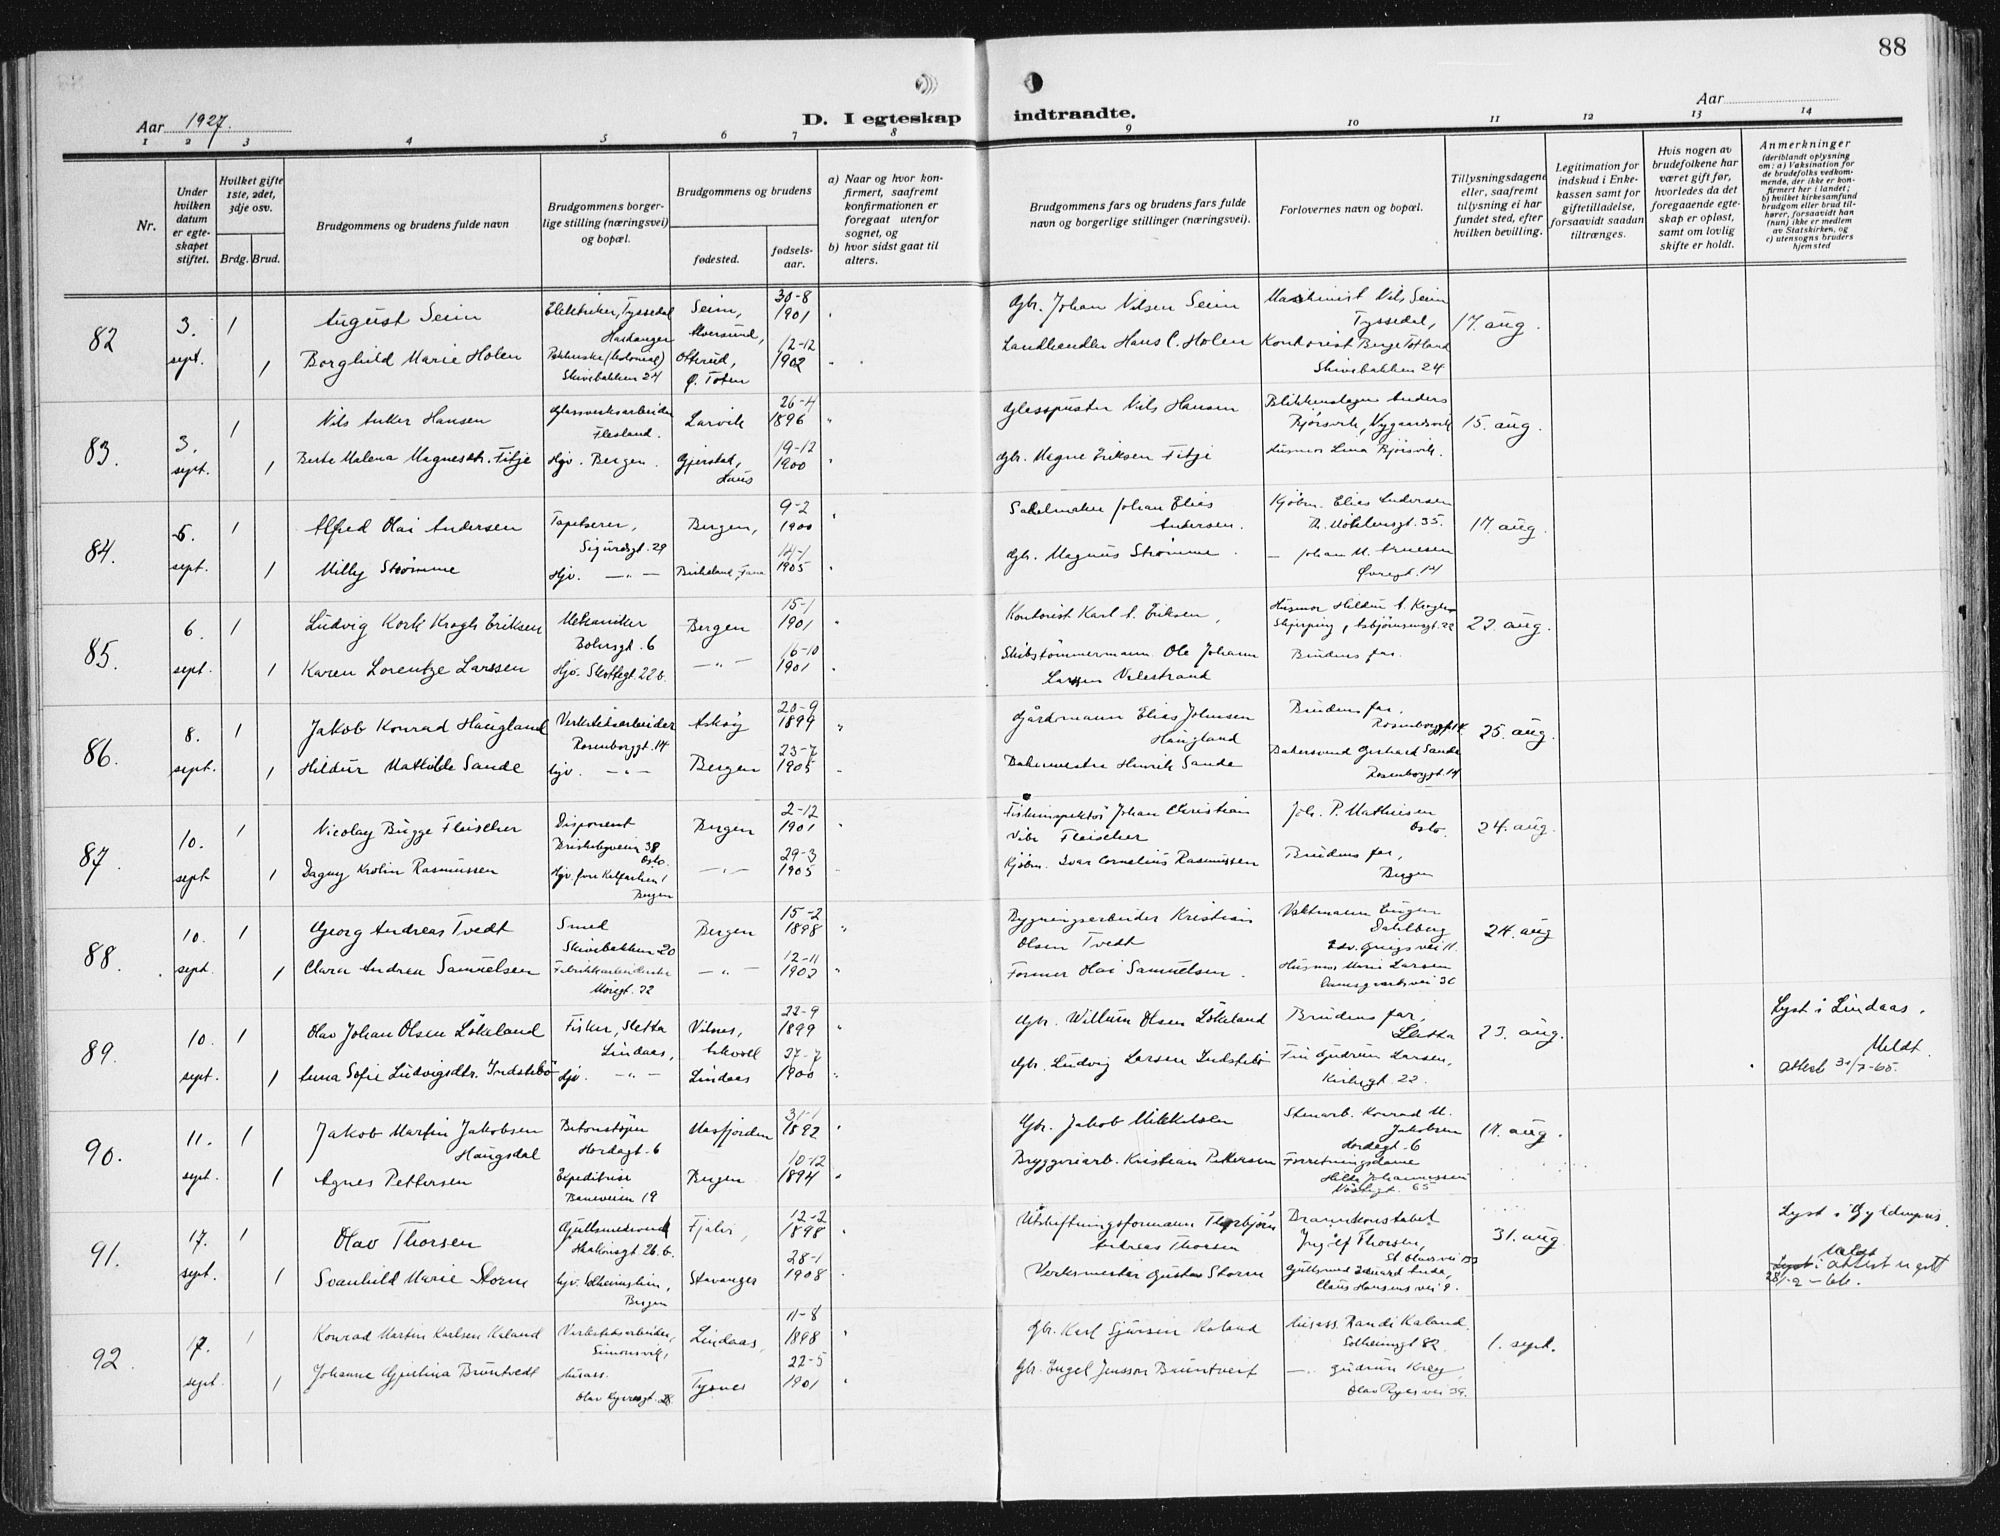 88
D. I egteskap indtraadte.
Aar 1927.
Aar
1 2 3 4 5 6 7 8 9 10 11 12 13 14
Nr.
Under hvilken datum er egteskapet stiftet.
Hvilket gifte 1ste, 2det, 3dje osv.
Brdg. Brud.
Brudgommens og brudens fulde navn
Brudgommens borgerlige stilling (næringsvei) og bopæl.
Brudgommens og brudens
fødested.
fødselsaar.
a) Naar og hvor konfirmert, saafremt konfirmationen er foregaat utenfor sognet, og
b) hvor sidst gaat til alters.
Brudgommens fars og brudens fars fulde navn og borgerlige stillinger (næringsvei).
Forlovernes navn og bopæl.
Tillysningsdagene eller, saafremt tillysning ei har fundet sted, efter hvilken bevilling.
Legitimation for indskud i Enkekassen samt for giftetilladelse, forsaavidt saadan tiltrænges.
Hvis nogen av brudefolkene har været gift før, hvorledes da det foregaaende egteskap er opløst, samt om lovlig skifte er holdt.
Anmerkninger
(deriblandt oplysning om: a) Vaksination for de brudefolks vedkommende, der ikke er konfirmert her i landet; b) hvilket kirkesamfund brudgom eller brud tilhører, forsaavidt han (hun) ikke er medlem av Statskirken, og c) utensogns bruders hjemsted
82 3. sept. 1 August Seim Elektriker, Tyssedal Hardanger Seim, Alversund, 30-8 1901 Gbr. Johan Nilsen Seim Maskinist Nils Seim Tyssedal, 17. aug.
1 Borghild Marie Holen (kolonial) Skivebakken 24 Ø. Toten 12-12 1902 Landhandler Hans C. Holen Kontorist Berge Totland Skivebakken 24
83. 3. sept. 1 Nils Anker Hansen Glassverksarbeider Flesland. Larvik 26-4 1896 Glasspuster Nils Hansen Blikkenslager Anders Bjørsvik, Nygaardsvik 15. aug.
1 Berte Malena Magnesdtr. Fitje Hjv. Bergen. Gjerstad, Haus 19-12 1900 Gbr. Magne Eriksen Fitje Husmor Lina Bjørsvik.
84. 5. sept. 1 Alfred Olai Andersen Tapetserer, Sigurdsgt. 29 Bergen, 9-2 1900 Salelmaker Johan Elias Andersen. Kjøbm. Elias Andersen 35. 17. aug.
1 Milly Strømme Hjv. —"— Birkeland, Fana 14-1 1905 Gbr. Magnus Strømme. — Johan M. Øvregt. 14
85. 6. sept. 1 Ludvig Kork Krogh Eriksen Mekaniker 6 Bergen 15-1 1901 Kontorist Karl A. Eriksen, Husmor Hildur A. Krogh Asbjørnsensgt. 22 22. aug.
1 Karen Lorentze Larssen Hjv. Slettegt. 22b. —"— 16-10 1901 Skibstømmermann Ole Johan Larssen Valestrand Brudens far.
86. 8. sept. 1 Jakob Konrad Haugland Verkstedsarbeider Rosenborggt. 14 Askøy 20-9 1899 Gårdmann Elias Johnsen Haugland Brudens far, Rosenborggt. 14 25. aug.
1 Hildur Mathilde Sande Hjv. —"— Bergen 23-7 1905 Bakermester Henrik Sande Bakersvend Gerhard Sande Rosenborggt. 14
87. 10. sept 1 Nicolay Bugge Fleischer Disponent Briskebyveien 38 Oslo. Bergen 2-12 1901 Fiskeinspektør Johan Christian Vibe Fleischer Joh. P. Mathiesen Oslo. 24. aug.
1 Dagny Krolin Rasmussen Hjv. Kalfarlien 1 Bergen —"— 29-3 1905 Kjøbm. Ivar Cornelius Rasmussen Brudens far, Bergen
88. 10. sept. 1 Georg Andreas Tvedt Smed Skivebakken 20 Bergen 15-2 1898 Bygningsarbeider Kristian Olsen Tvedt Vaktmann Eugen Dahlberg Edv. Griegs vei 11. 24. aug
1 Clara Andrea Samuelsen Fabrikkarbeiderske 22 —"— 12-11 1902 Former Olai Samuelsen. Husmor Marie Larsen Damsgaardsvei 36
89. 10. sept. 1 Olav Johan Olsen Løkeland Fisker, Sletta Lindaas, Vilnes, Askvoll 22-9 1899 Gbr. Willum Olsen Løkeland Brudens far, Sletta 23. aug. Lyst i Lindaas. Meldt.
1 Anna Sofie Ludvigsdtr. Indstebø Hjv. —"— Lindaas 27-7 1900 Gbr. Ludvig Larsen Indstebø Frk Gudrun Larsen, Kirkegt. 22. attest 3/7-65.
90. 11. sept. 1 Jakob Martin Jakobsen Haugsdal Betonstøper Hordagt. 6 Masfjorden 31-1 1892 Gbr. Jakob Mikkelsen Stenarb. Konrad M. Jakobsen Hordagt. 6 17. aug.
1 Agnes Pettersen Expeditrise 19 Bergen 10-12 1894 Bryggeriarb. Kristian Pettersen Forretningsdame Hilda Johannessen 65
91. 17. sept. 1 Olav Thorsen Gullsmedsvend Haakonsgt. 26.b. Fjaler, 12-2 1898 Utskiftningsformann Thorbjørn Andreas Thorsen Brannkonstabel Ingolf Thorsen, St. Olavs vei 31. aug. Lyst i
1 Svanhild Marie Storm Hjv. Solheimslien, Bergen Stavanger 28-1 1908 Verksmester Gustav Storm Gullsmed Claus Hansens vei 9. Meldt attest 28/2-66.
92 17. sept. 1 Konrad Martin Karlsen Kaland Verkstedsarbeider, Simonsvik, Lindaas, 11-8 1898 Gbr. Karl Sjursen Kaland Husass. Randi Kaland. Solheimsgt 82 1. sept.
1 Johanne Gjertina Bruntvedt Husass. Olav Kyrresgt. 28 Tysnes 22-5 1901 Gbr. Engel Jensson Bruntveit —"— Gudrun Krey, Olav Ryes vei 39.